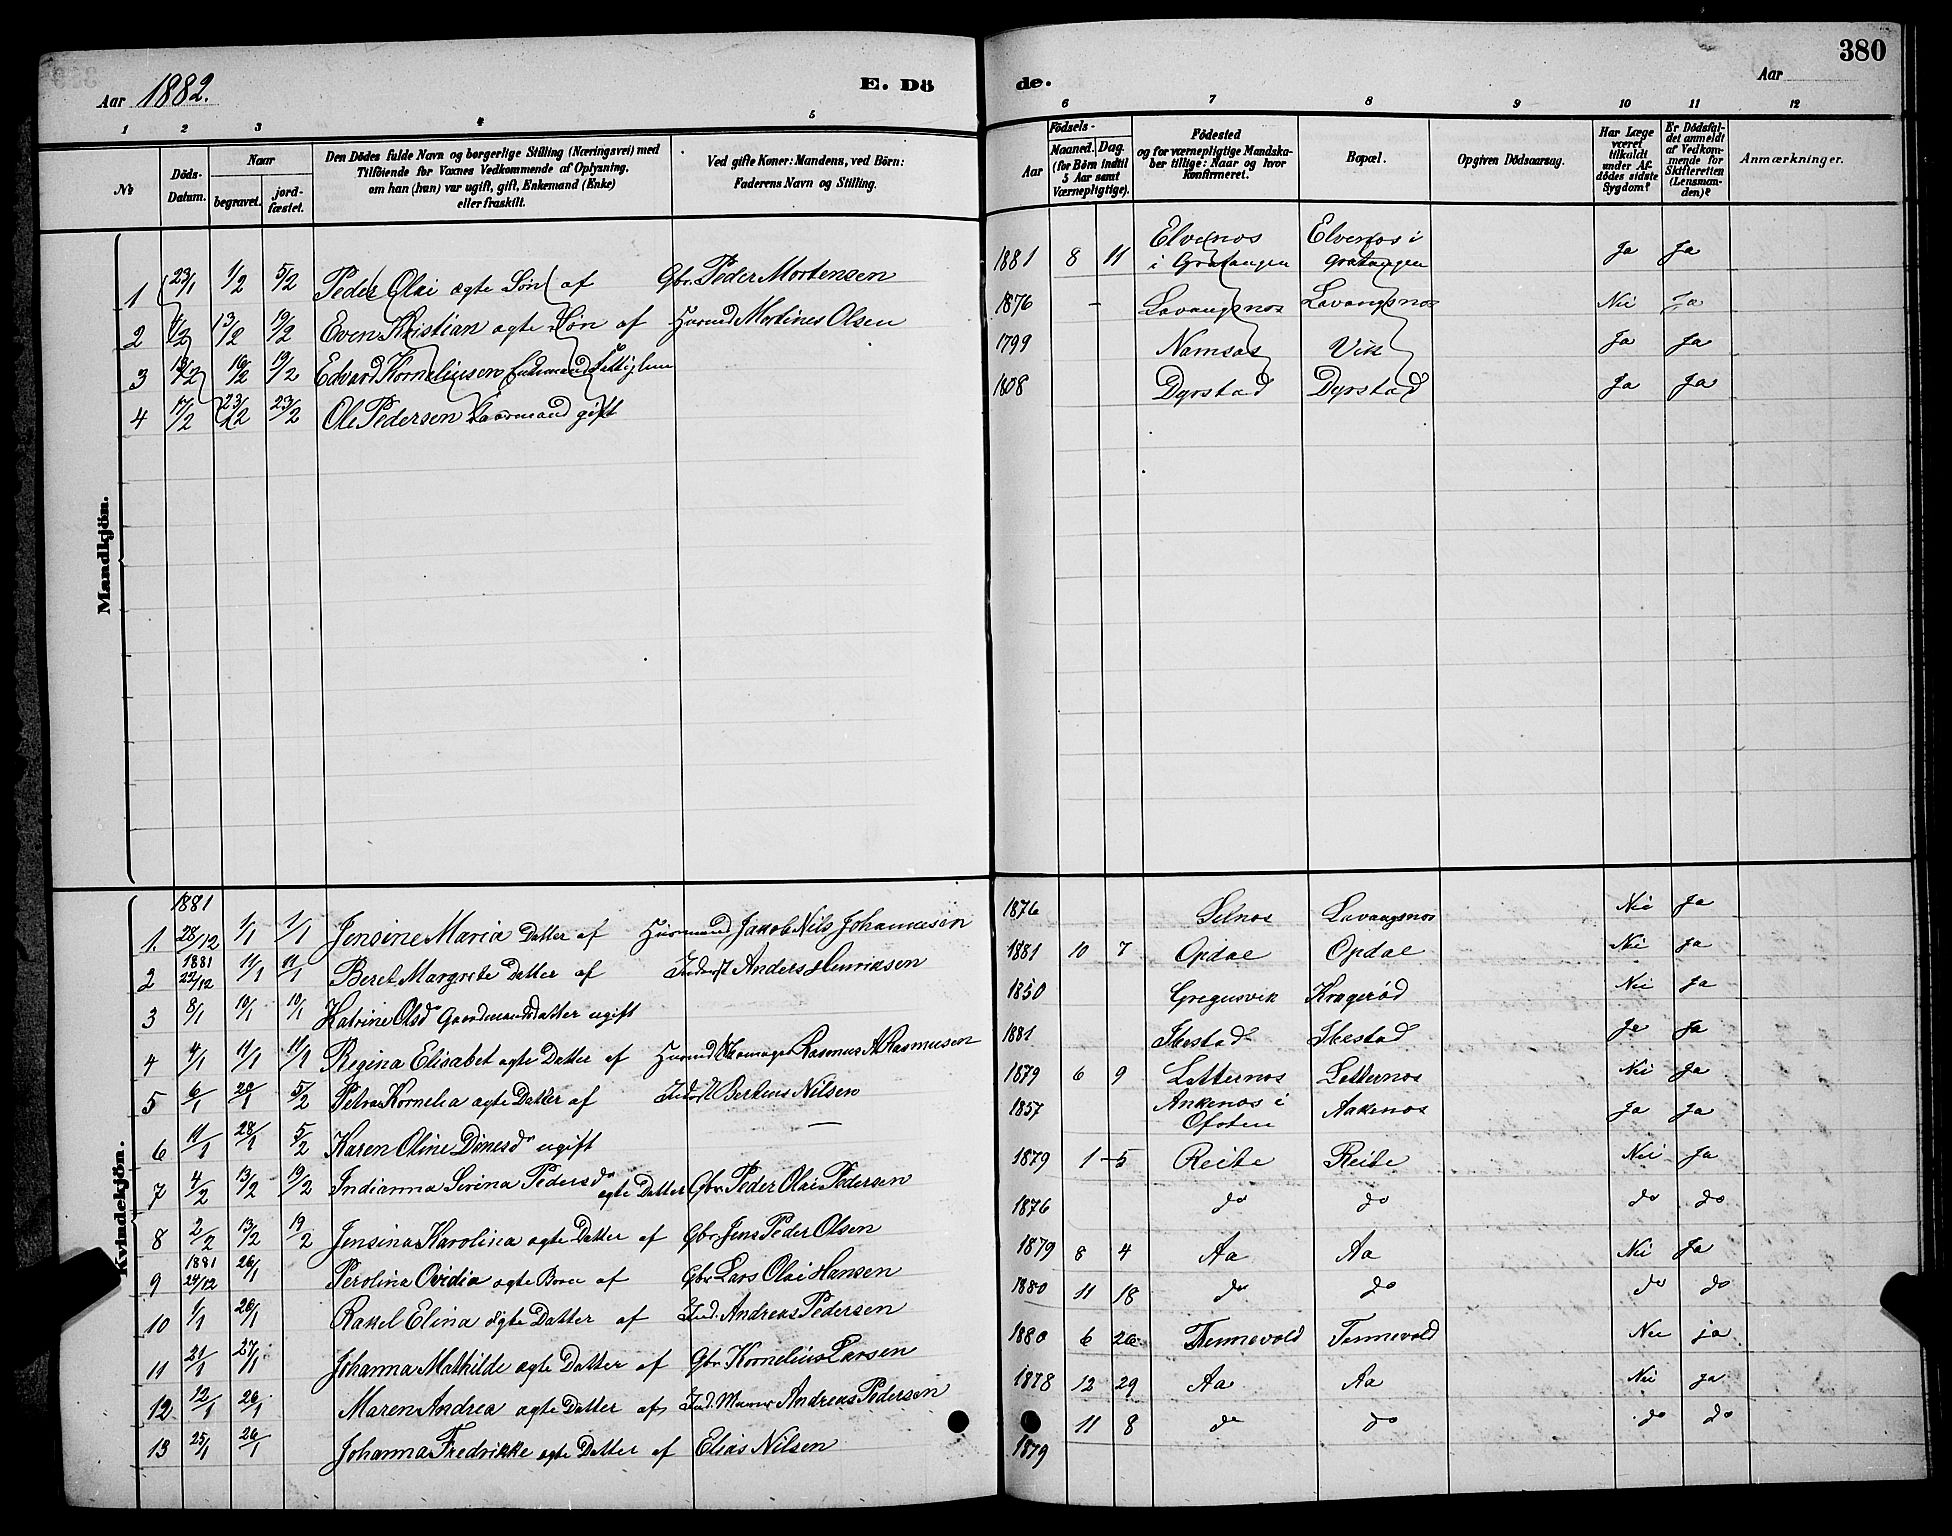 Aar 1882.
E. Dö
de.
Aar
380
1 2 3 4 5
6 7 8 9 10 11 12
№
Döds-Datum.
Naar
begravet.
jord-fæstet.
Den Dödes fulde Navn og borgerlige Stilling (Næringsvei) med
Tilföiende for Voxnes Vedkommende af Oplysning,
om han (hun) var ugift, gift, Enkemand (Enke)
eller fraskilt.
Ved gifte Koner: Mandens, ved Börn:
Faderens Navn og Stilling.
Födsels-
Aar
Maaned. Dag.
(for Börn indtil
5 Aar samt
Værnepligtige).
Födested
og for værnepligtige Mandska-
ber tillige: Naar og hvor
konfirmeret.
Bopæl.
Opgiven Dödsaarsag.
Har Læge
været
tilkaldt
under Af-
dödes sidste
Sygdom?
Er Dödsfal-
det anmeldt
af Vedkom-
mende for
Skifteretten
(Lensman-
den)?
Anmærkninger.
Mandkjön.
1 23/1 1/2 5/2 Peder Olai ægte Søn af Gbr. Peder Mortensen 1881 8 11 Elvenos i Gratangen Elvenos i Gratangen Ja Ja
2 13/2 19/2 Even Kristian ægte Søn af Husmd Mortines Olsen 1876 - Lavangsnos Lavangsnos Nei Ja
3 19/2 19/2 Edvard Korneliusen Enkemand 1799 Namsos Vik Ja Ja
4 17/2 23/2 23/2 Ole Pedersen Kaarmand gift 1808 Dyrstad Dyrstad Ja Ja
Kvindekjön.
1. 1881 28/12 1/1 1/1 Jensine Maria Datter af Husmand Jakob Nils Johannesen 1876 Selnos Lavangsnos Nei Ja
2 1881 22/12 11/1 11/1 Beret Margrete Datter af Inderst Anders Henriksen 1881 10 7 Opdal Opdal Nei Ja
3 8/1 19/1 19/1 Katrine Olsdr Gaardmandsdatter ugift 1850 Gregusvik Krogerød Nei Ja
4 4/1 11/1 11/1 Regina Elisabet ægte Datter af Husmd Skomager Rasmus A Rasmusen 1881 Ibestad Ibestad Ja Ja
5 6/1 28/1 5/2 Petra Kornelia ægte Datter af Inderst Berteus Nilsen 1879 6 9 Latternos Latternos Nei Ja
6 11/1 28/1 5/2 Karen Oline Dinesdr ugift — 1857 Ankenos i Ofoten Aakenos Ja Ja
7 4/2 13/2 19/2 Indianna Serina Pedersdr ægte Datter Gbr. Peder Olai Pedersen 1879 1 - 5 Reite Reite Nei Ja
8 2/2 13/2 19/2 Jensina Karolina ægte Datter af Gbr Jens Peder Olsen 1876 do do do do
9 1881 29/12 26/1 Perolina Ovidia ægte Barn af Gbr Lars Olai Hansen 1879 8 4 Aa Aa Nei Ja
10 1/1 26/1 Rakel Elina ægte Datter af Ind. Andreas Pedersen 1880 11 18 do do do do
11 21/1 27/1 Johanna Mathilde ægte Datter af Gbr Kornelius Larsen 1880 6 26 Tennevold Tennevold Nei ja
12 12/1 26/1 Maren Andrea ægte Datter af Ind. Andreas Pedersen 1878 12 29 Aa Aa Nei ja
13 25/1 26/1 Johanna Fredrikke ægte Datter af Elias Nilsen 1879 11 8 do do do do